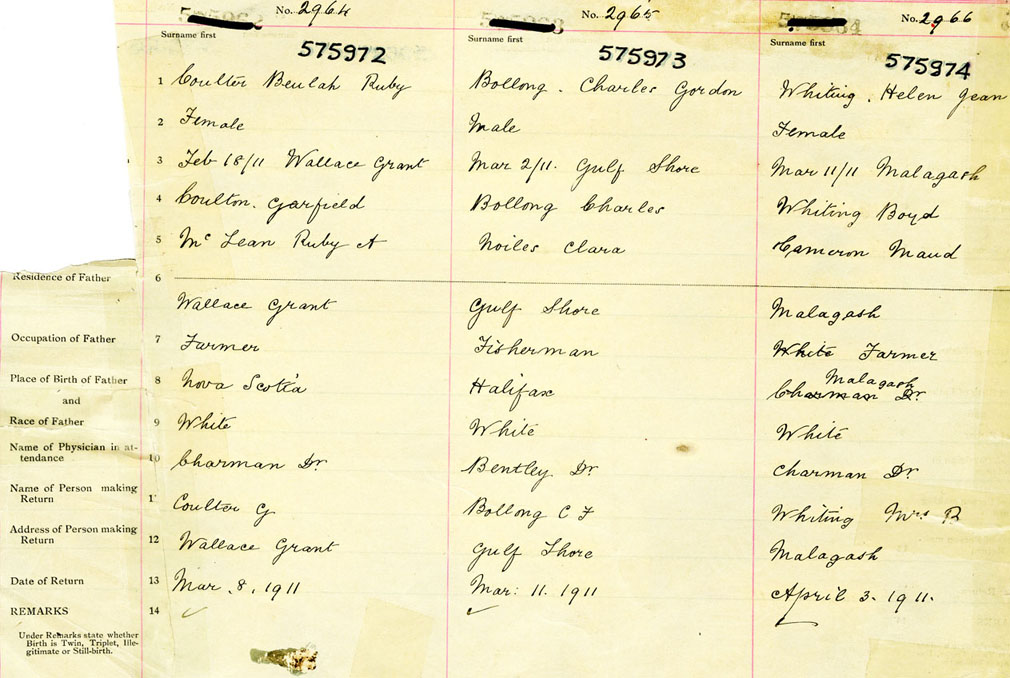 No. 2964
Surname first
575972
No. 2965
Surname first
575973
No. 2966
Surname first
575974
1 Coulter Beulah Ruby
Bollong. Charles Gordon
Whiting. Helen Jean
2 Female
Male
Female
3 Feb 18/11 Wallace Grant
Mar 2/11. Gulf Shore
Mar 11/11 Malagash
4 Coulton. Garfield
Bollong Charles
Whiting Boyd
5 Mc Lean Ruby A
Noiles Clara
Cameron Maud
Residence of Father 6
Wallace Grant
Gulf Shore
Malagash
Occupation of Father 7 Farmer
Fisherman
White Farmer
Place of Birth of Father 8 Nova Scotia
Halifax
Malagash
Charman Dr.
and
Race of Father 9 White
White
White
Name of Physician in at-
tendance 10 Charman Dr
Bentley Dr
Charman Dr.
Name of Person making
Return 11 Coulter G
Bollong C F
Whiting Mrs B
Address of Person making
Return 12 Wallace Grant
Gulf Shore
Malagash
Date of Return 13 Mar. 8, 1911
Mar: 11. 1911
April 3. 1911.
REMARKS 14
Under Remarks state whether
Birth is Twin, Triplet, Ille-
gitimate or Still-birth.